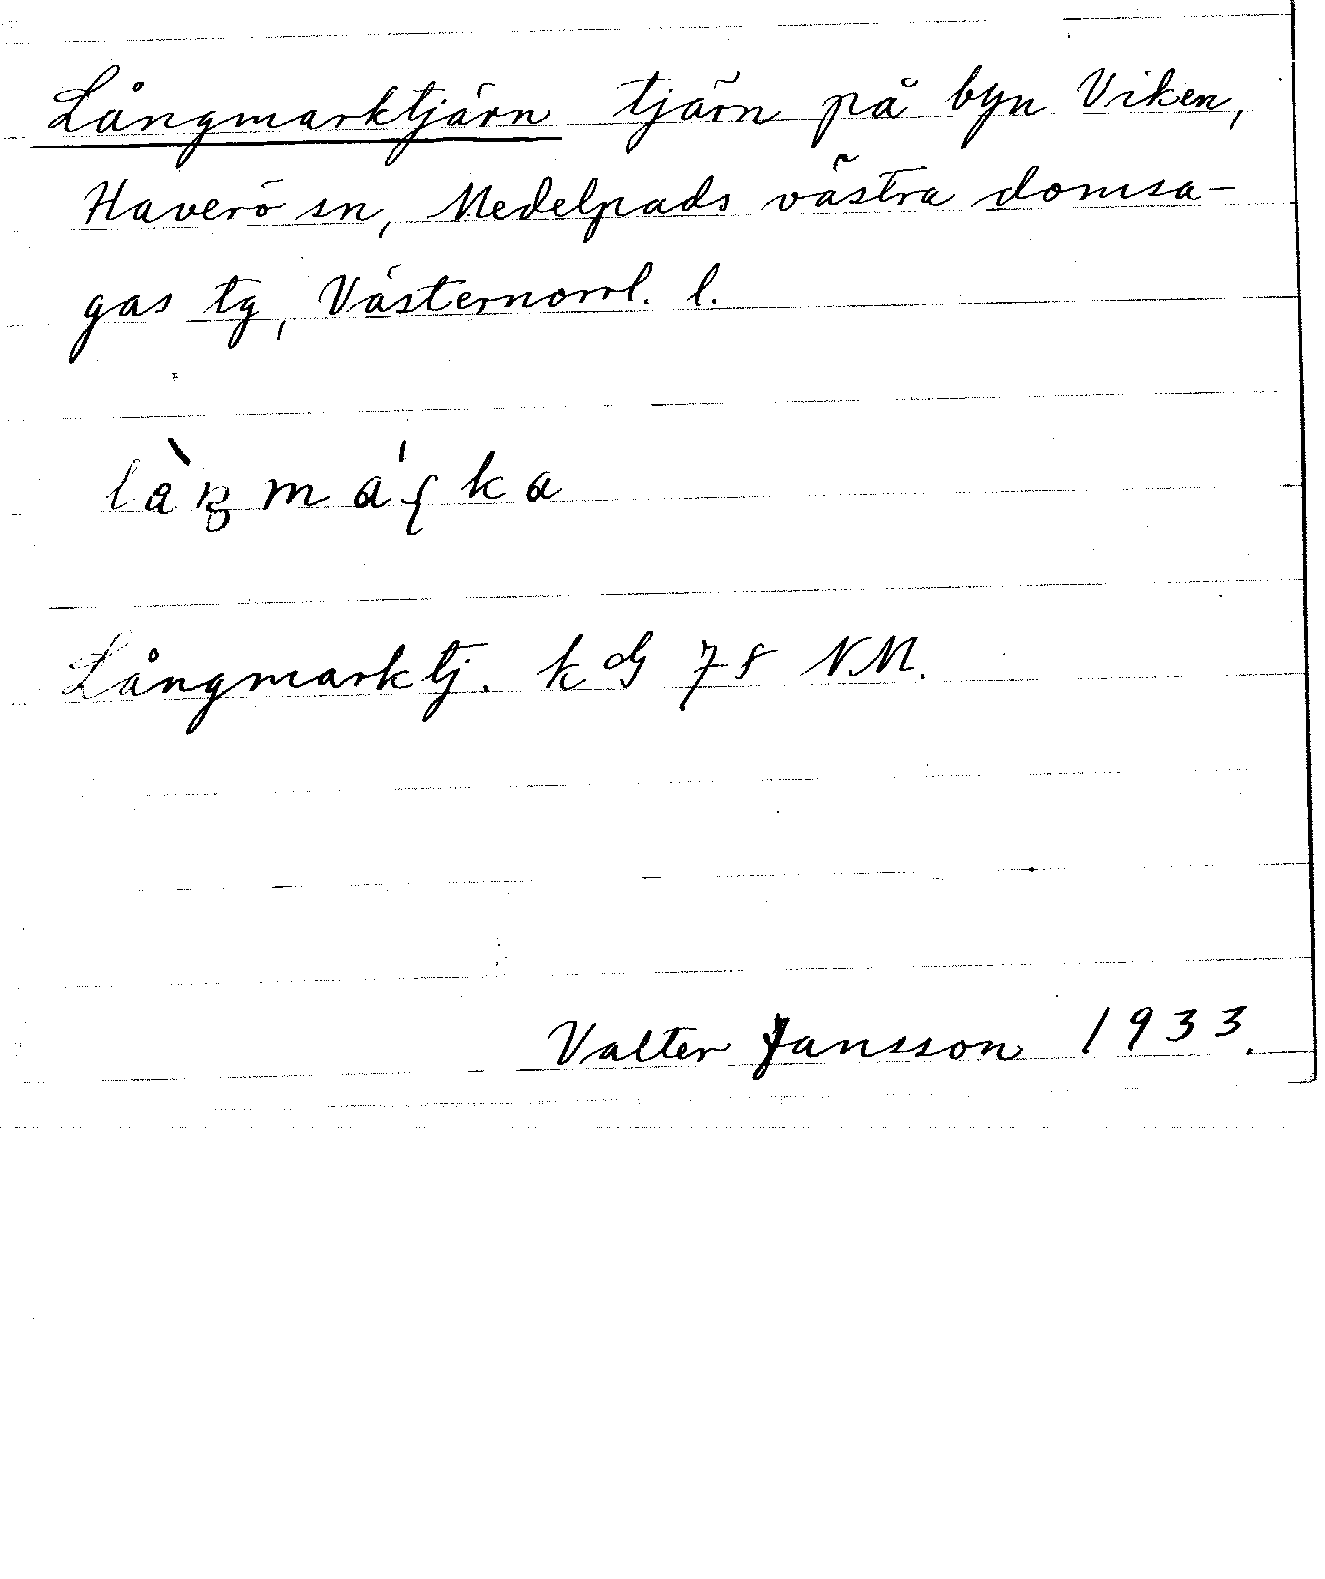 Långmarktjärn tjärn på byn Viken,
Haverö sn, Medelpads västra domsa-
gas tg, Västernorrl. l.
Långmarktj. k dG 78 NM.
Valter Jansson 1933.